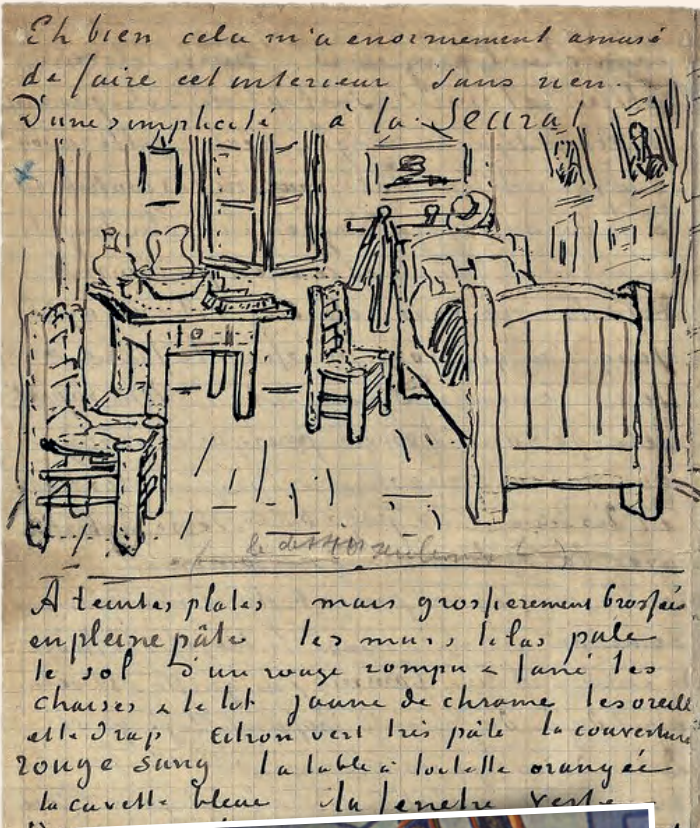 Eh bien cela m'a enormement amusé
de faire cet interieur sans rien.
D'une simplicité à la Seurat
le dessin seulement
A teintes plates mais grossierement brossées
en pleine pâte les murs lilas pale
le sol d'un rouge rompu & fané les
chaises & le lit jaune de chrome les oreill
et le drap citron vert très pâle la couverture
rouge sang la table à toilette orangée
la cuvette bleue la fenetre verte